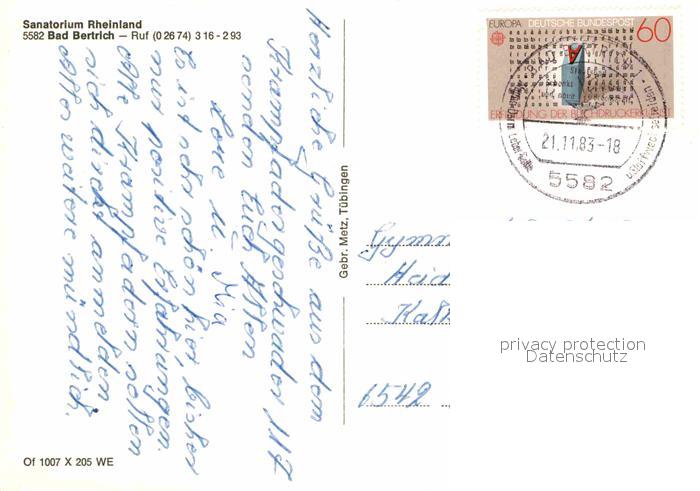 Sanatorium Rheinland
5582 Bad Bertrich – Ruf (0 26 74) 3 16 - 2 93
Herzliche Grüße aus dem
Krampfadergeschwader III
senden Euch allen
Lore u. Pia
Es ist sehr schön hier, bisher
nur positive Erfahrungen.
Alle Krampfadern sollen
sich direkt anmelden
Alles weitere mündlich.
Of 1007 X 205 WE
Gebr. Metz, Tübingen
EUROPA DEUTSCHE BUNDESPOST 60
ERFINDUNG DER BUCHDRUCKERKUNST
21.11.83-18
5582
Gymn
Heid
6542
privacy protection
Datenschutz